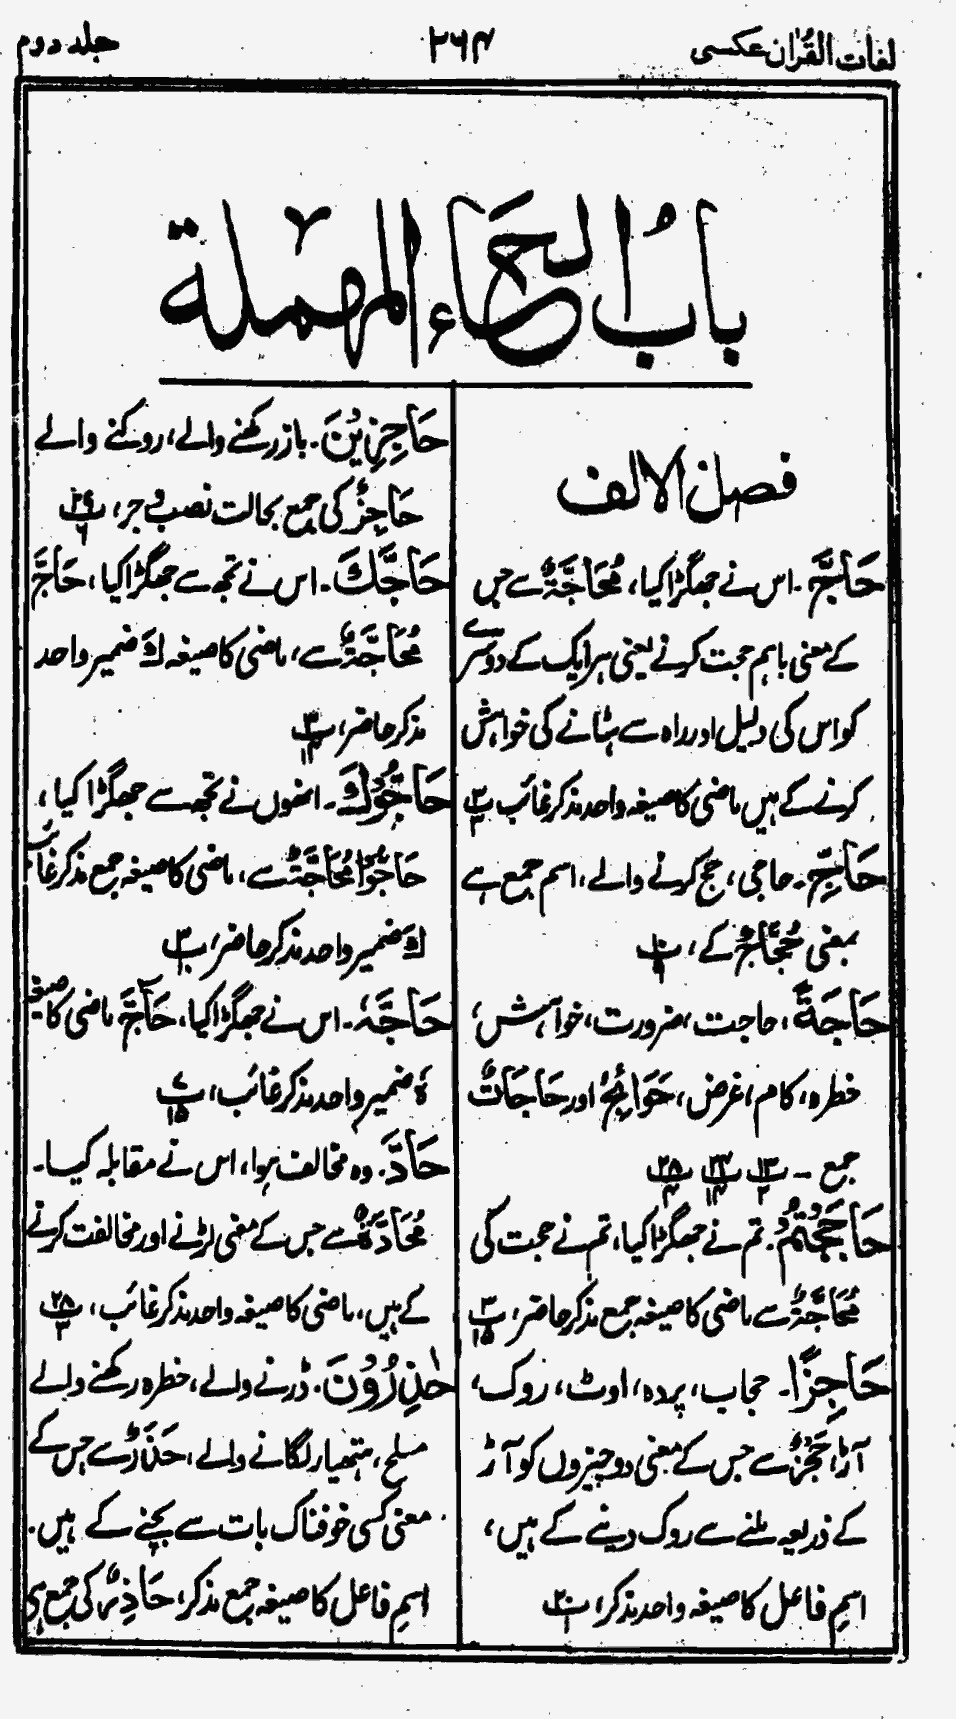 لغات القرآن عکسی
۲۶۴
جلد دوم
باب الحاء المهملة
فصل الالف
حَاجَّ۔ اس نے جھگڑا کیا، مُحَاجَّةٌ سے جس
کے معنی باہم حجت کرنے یعنی ہر ایک کے دوسرے
کو اس کی دلیل اور راہ سے ہٹانے کی خواہش
کرنے کے ہیں ماضی کا صیغہ واحد مذکر غائب پ۳
حَاجّ۔ حاجی، حج کرنے والے، اسم جمع ہے
بمعنی حُجَّاجٌ کے، پ۱۰
حَاجَةً، حاجت، ضرورت، خواہش،
خطرہ، کام، غرض، حَوَائِجُ اور حَاجَاتٌ
جمع ۔ پ۱۳ پ۲۴ پ۲۸
حَاجَجْتُمْ۔ تم نے جھگڑا کیا، تم نے حجت کی
مُحَاجَّةٌ سے ماضی کا صیغہ جمع مذکر حاضر، پ۳
حَاجِزًا۔ حجاب، پردہ، اوٹ، روک،
آڑ، حَجْزٌ سے جس کے معنی دو چیزوں کو آڑ
کے ذریعہ ملنے سے روک دینے کے ہیں،
اسمِ فاعل کا صیغہ واحد مذکر، پ۲۰
حَاجِزِيْنَ۔ باز رکھنے والے، روکنے والے
حَاجِزٌ کی جمع بحالت نصب و جر، پ۲۹
حَاجَّكَ۔ اس نے تجھ سے جھگڑا کیا، حَاجَّ
مُحَاجَّةٌ سے، ماضی کا صیغہ كَ ضمیر واحد
مذکر حاضر، پ۳
حَاجُّوْكَ۔ انھوں نے تجھ سے جھگڑا کیا،
حَاجُّوْا مُحَاجَّةٌ سے، ماضی کا صیغہ جمع مذکر غائب
كَ ضمیر واحد مذکر حاضر، پ۳
حَاجَّهٗ۔ اس نے جھگڑا کیا، حَآجَّ ماضی کا صیغہ
هٗ ضمیر واحد مذکر غائب، پ۷
حَادَّ۔ وہ مخالف ہوا، اس نے مقابلہ کیا۔
مُحَادَّةٌ سے جس کے معنی لڑنے اور مخالفت کرنے
کے ہیں، ماضی کا صیغہ واحد مذکر غائب، پ۲۸
حٰذِرُوْنَ۔ ڈرنے والے، خطرہ رکھنے والے
مسلح، ہتھیار لگانے والے، حَذَرٌ سے جس کے
معنی کسی خوفناک بات سے بچنے کے ہیں۔
اسمِ فاعل کا صیغہ جمع مذکر، حَاذِرٌ کی جمع